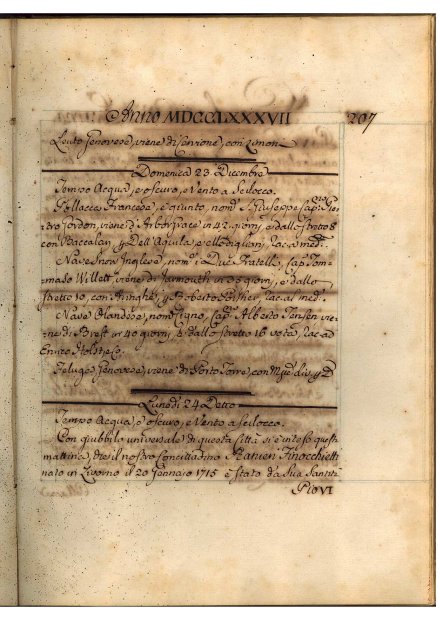 Anno MDCCLXXXVII 207
Leuto Genovese, viene di Cenione, con Limon
Domenica 23 Dicembre
Tempo Acqua, e oscuro, e Vento a Scilocco.
Pollacca Francese, è giunto, nom.ᵃ S. Giuseppe Cap.ⁿ
Jordon, viene d' in 42 giorni, e dallo stretto 8
con Baccalan, p Dell'Aquila,
Nave Snow Inglese, nom. i Due Fratelli, Cap. Tom-
maso Willett, viene di Jarmouth in 30 giorni, e dallo
stretto 10, con Aringhe, p Roberto
Nave Olandese, nom. Cigno, Cap. Alberto Jensin vie-
ne di Brest in 40 giorni, e dallo stretto 16 vota,
Enrico
Feluga Genovese, viene di Porto Torre, con
Lunedì 24 Detto
Tempo Acqua, e oscuro, e Vento a Scilocco.
Con giubbilo universale di questa Città si è inteso questa
mattina, che il nostro Concittadino Ranieri Finocchietti
nato in Livorno il 20 Gennaio 1715 è stato da Sua Santità
Pio VI